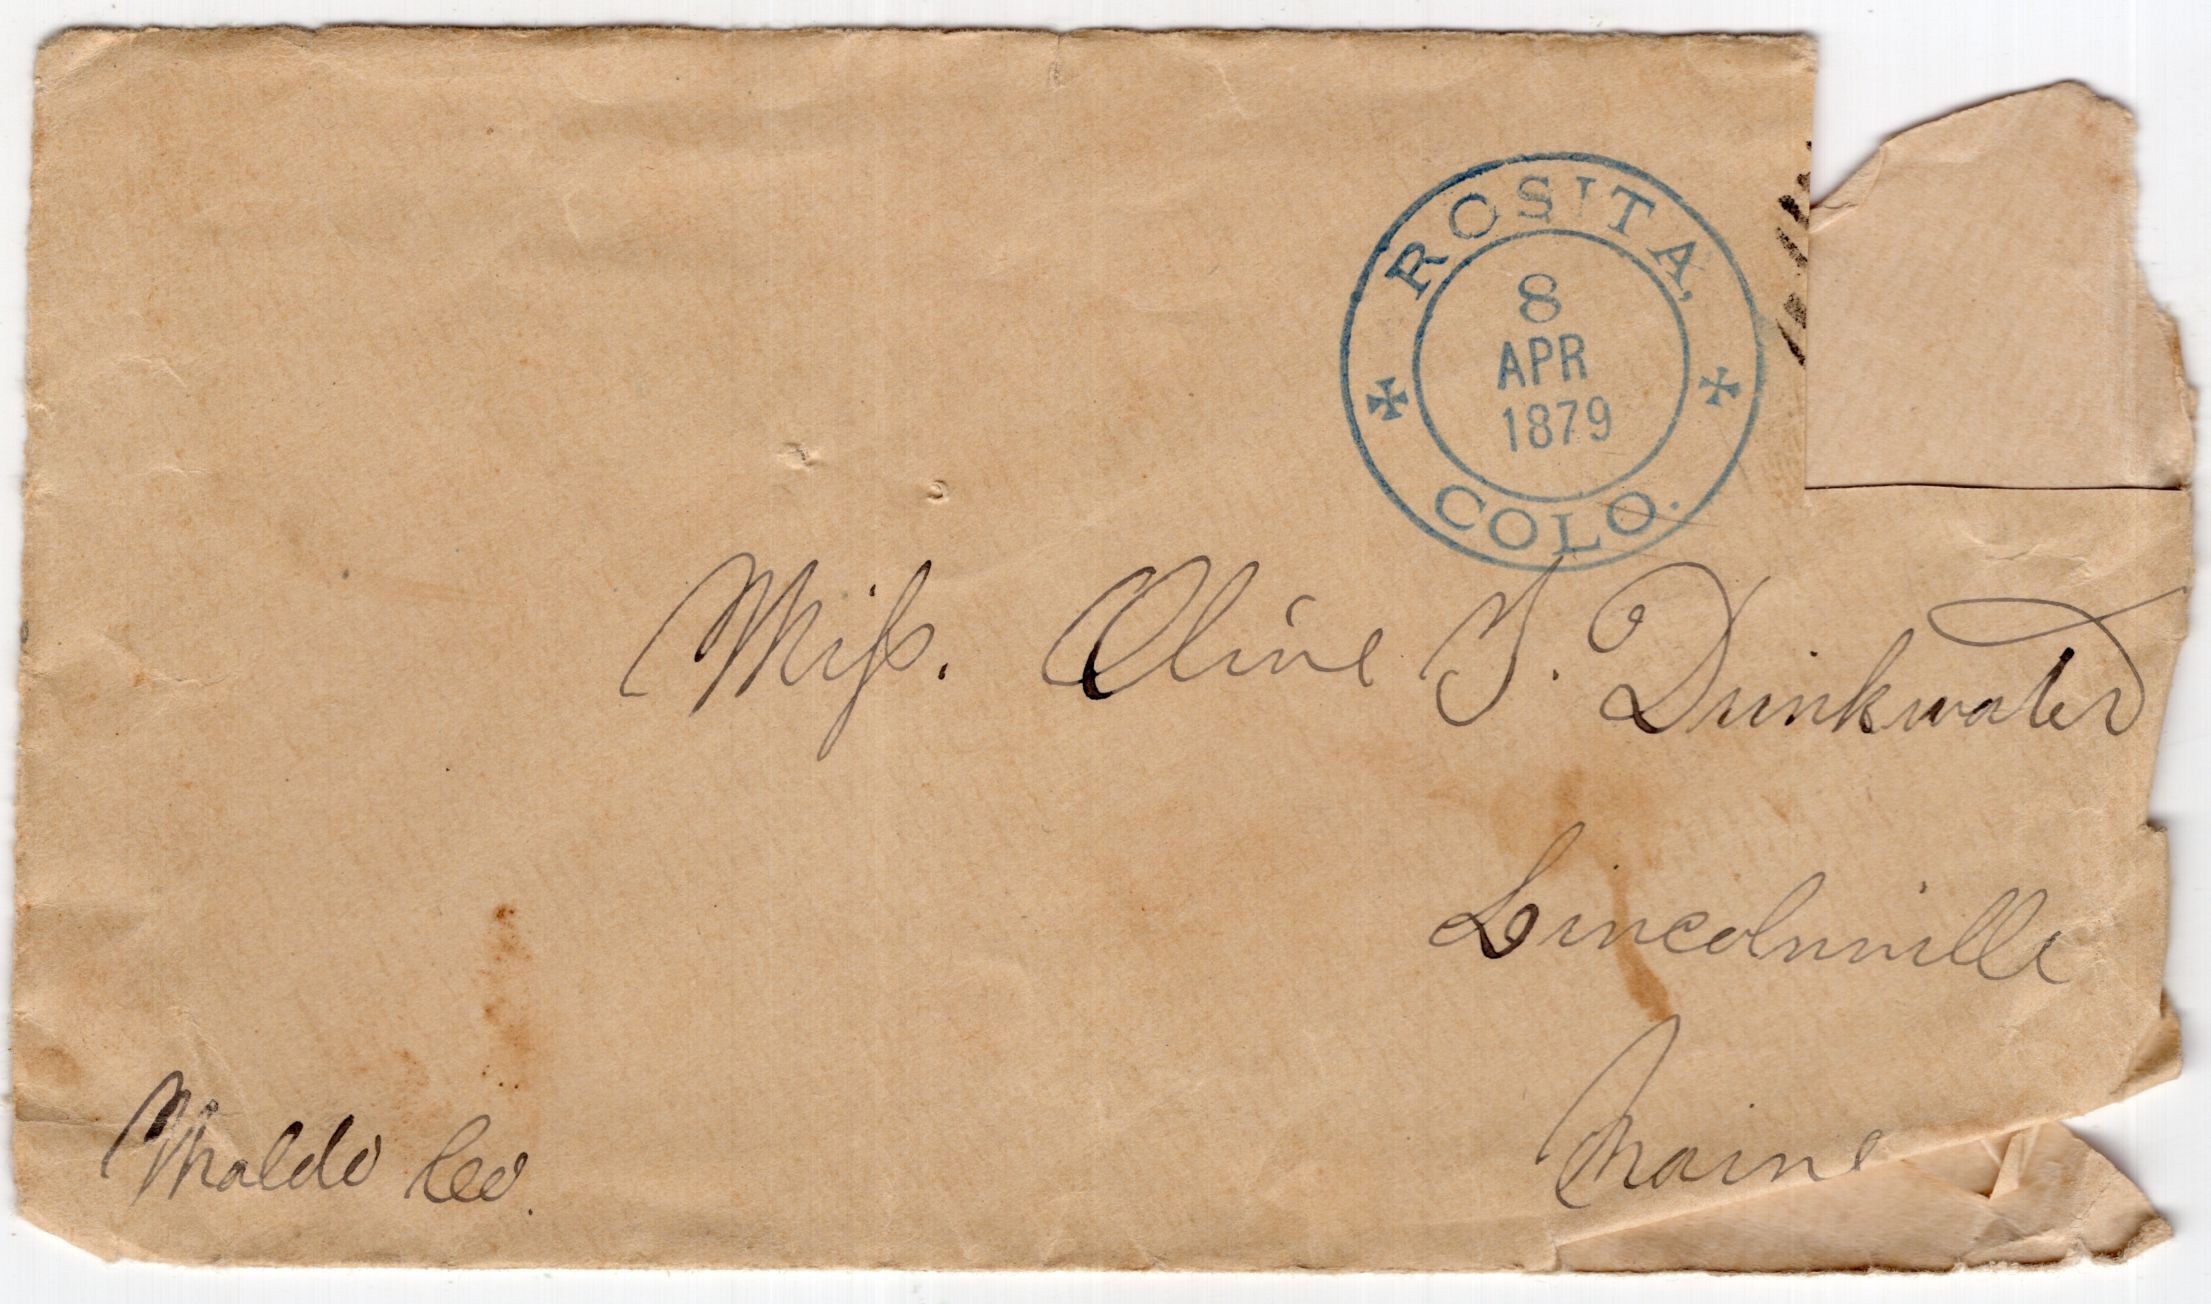 ROSITA,
8
APR
1879
COLO.
Miss. Olive S. Drinkwater
Lincolnville
Maine
Waldo Co.